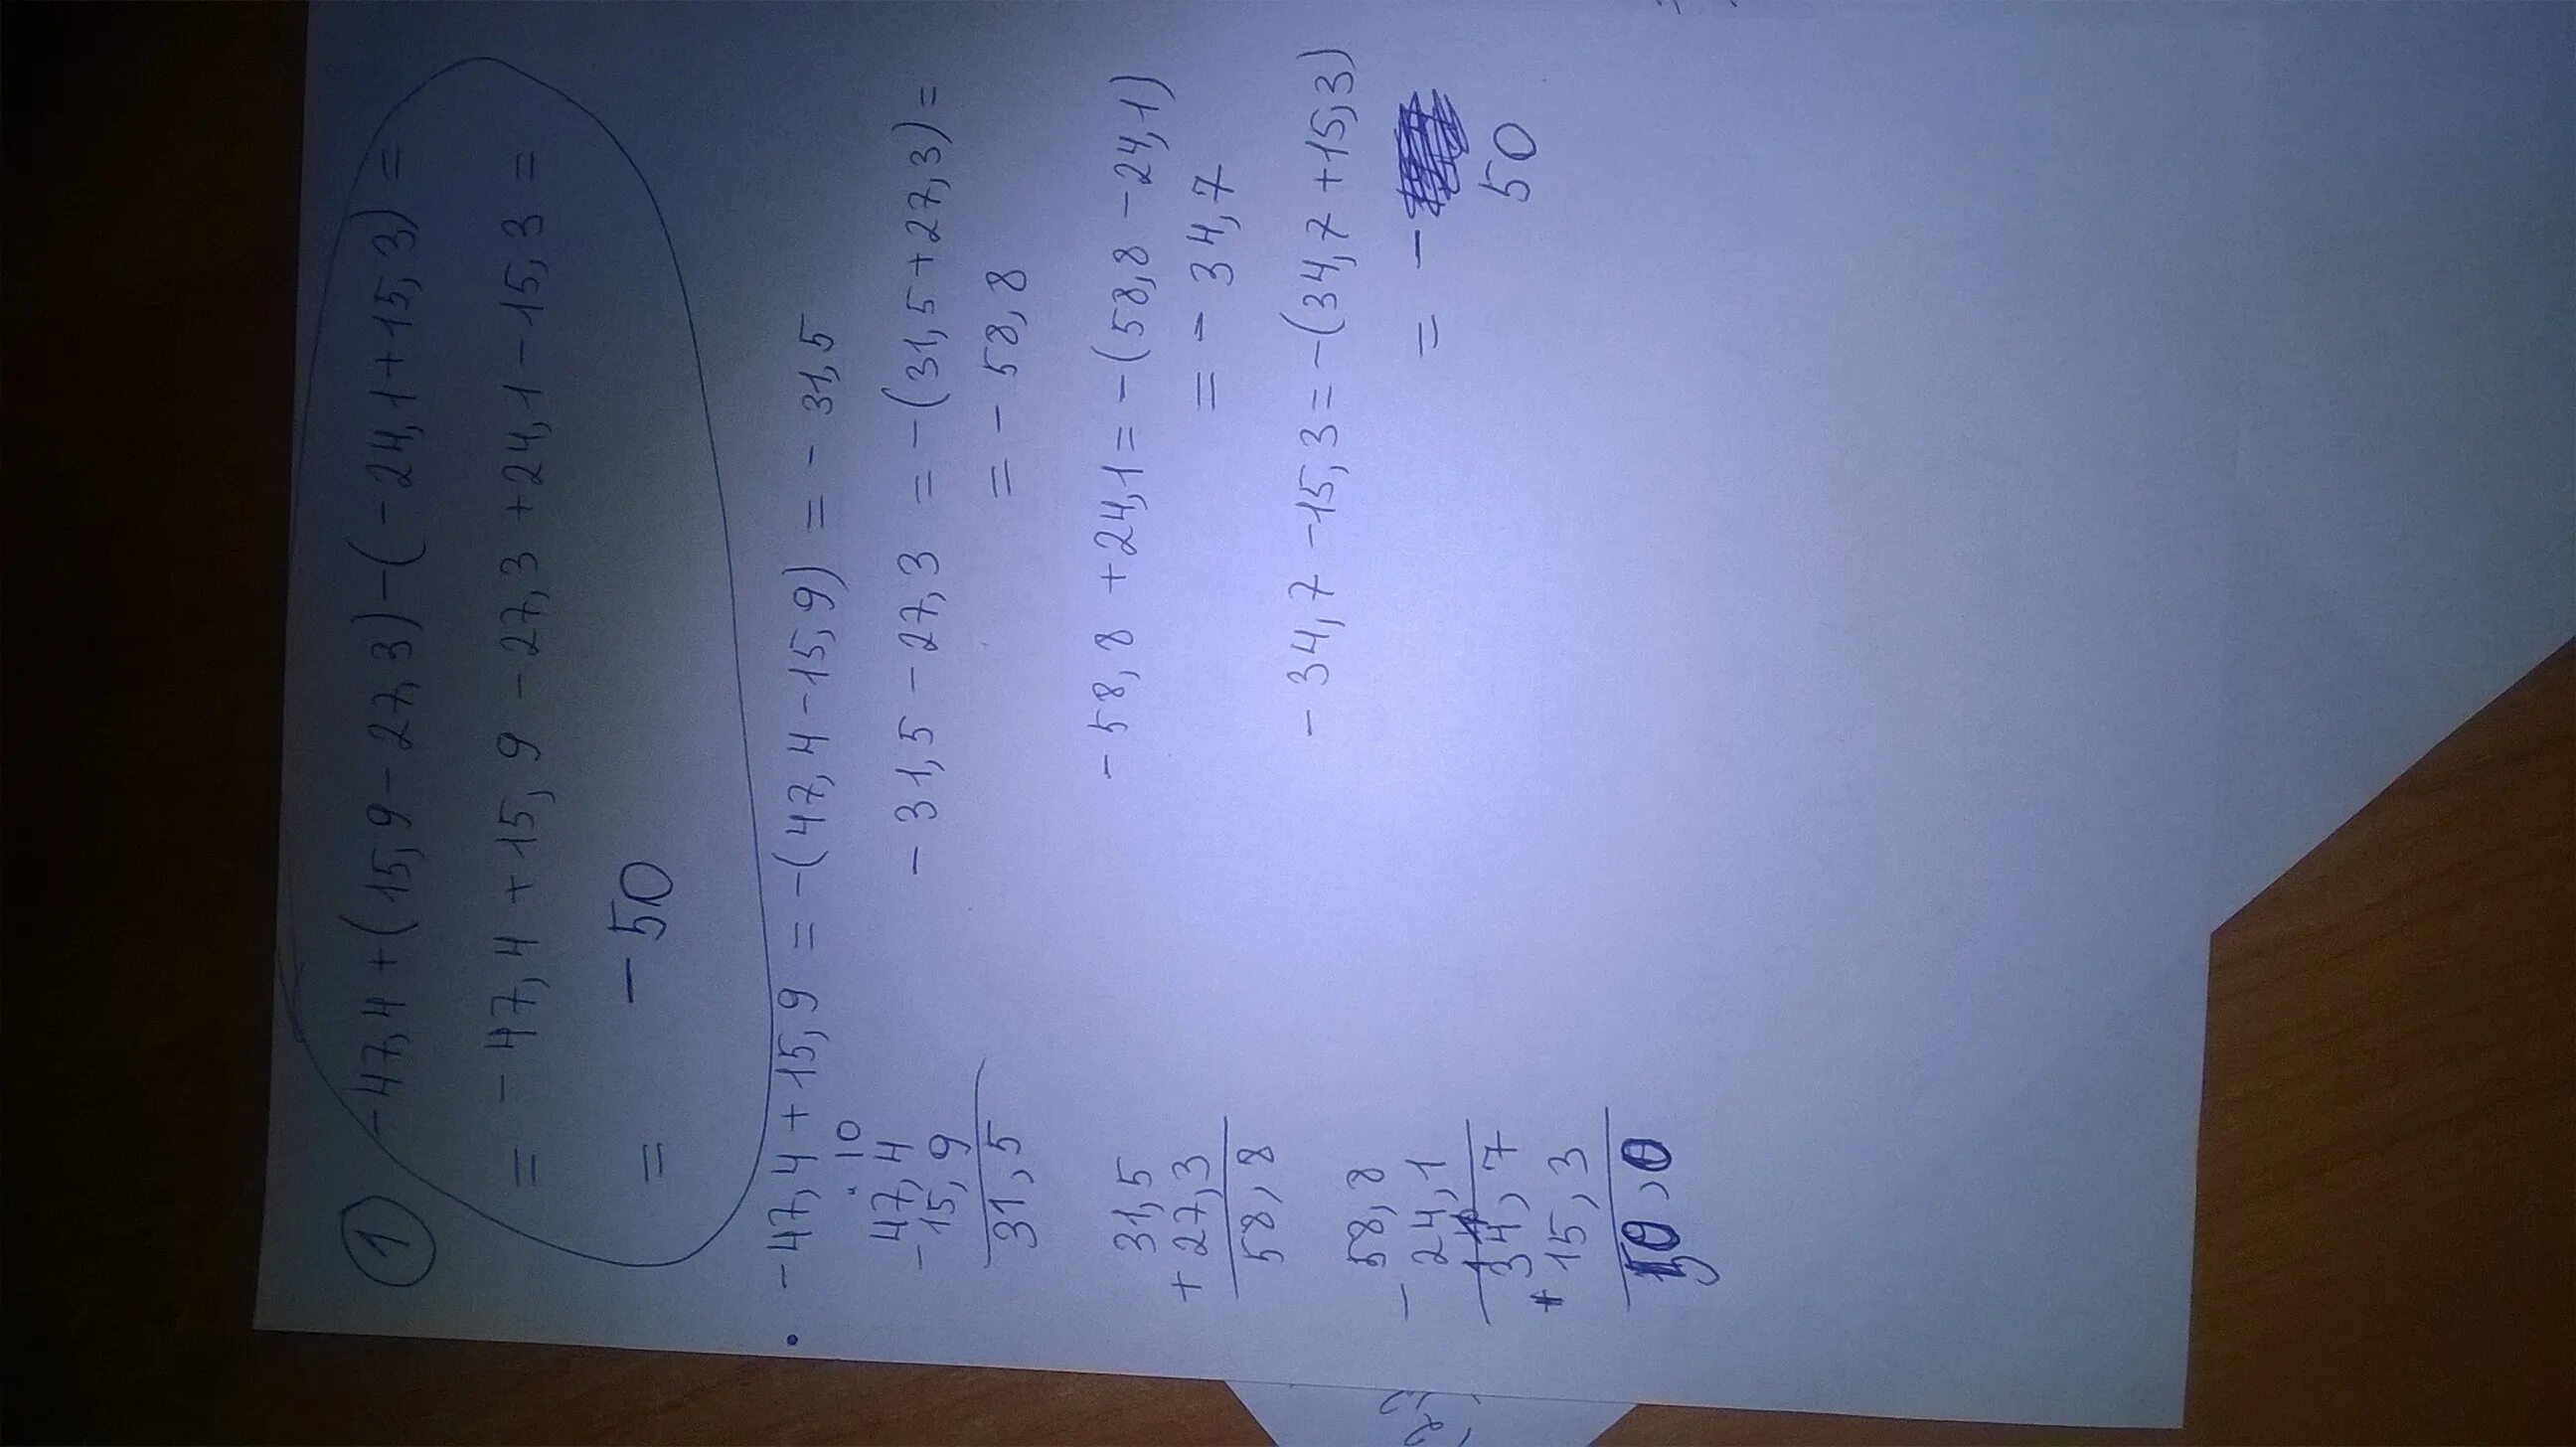 1 -47,4+(15,9-27,3)-(-24,1+15,3)=
= -47,4+15,9-27,3+24,1-15,3=
= -50
• -47,4+15,9=-(47,4-15,9)=-31,5
10
47,4
-15,9
31,5
-31,5-27,3=-(31,5+27,3)=
=-58,8
31,5
+27,3
58,8
-58,8+24,1=-(58,8-24,1)
=-34,7
58,8
-24,1
34,7
+15,3
50,0
-34,7-15,3=-(34,7+15,3)
= -
50